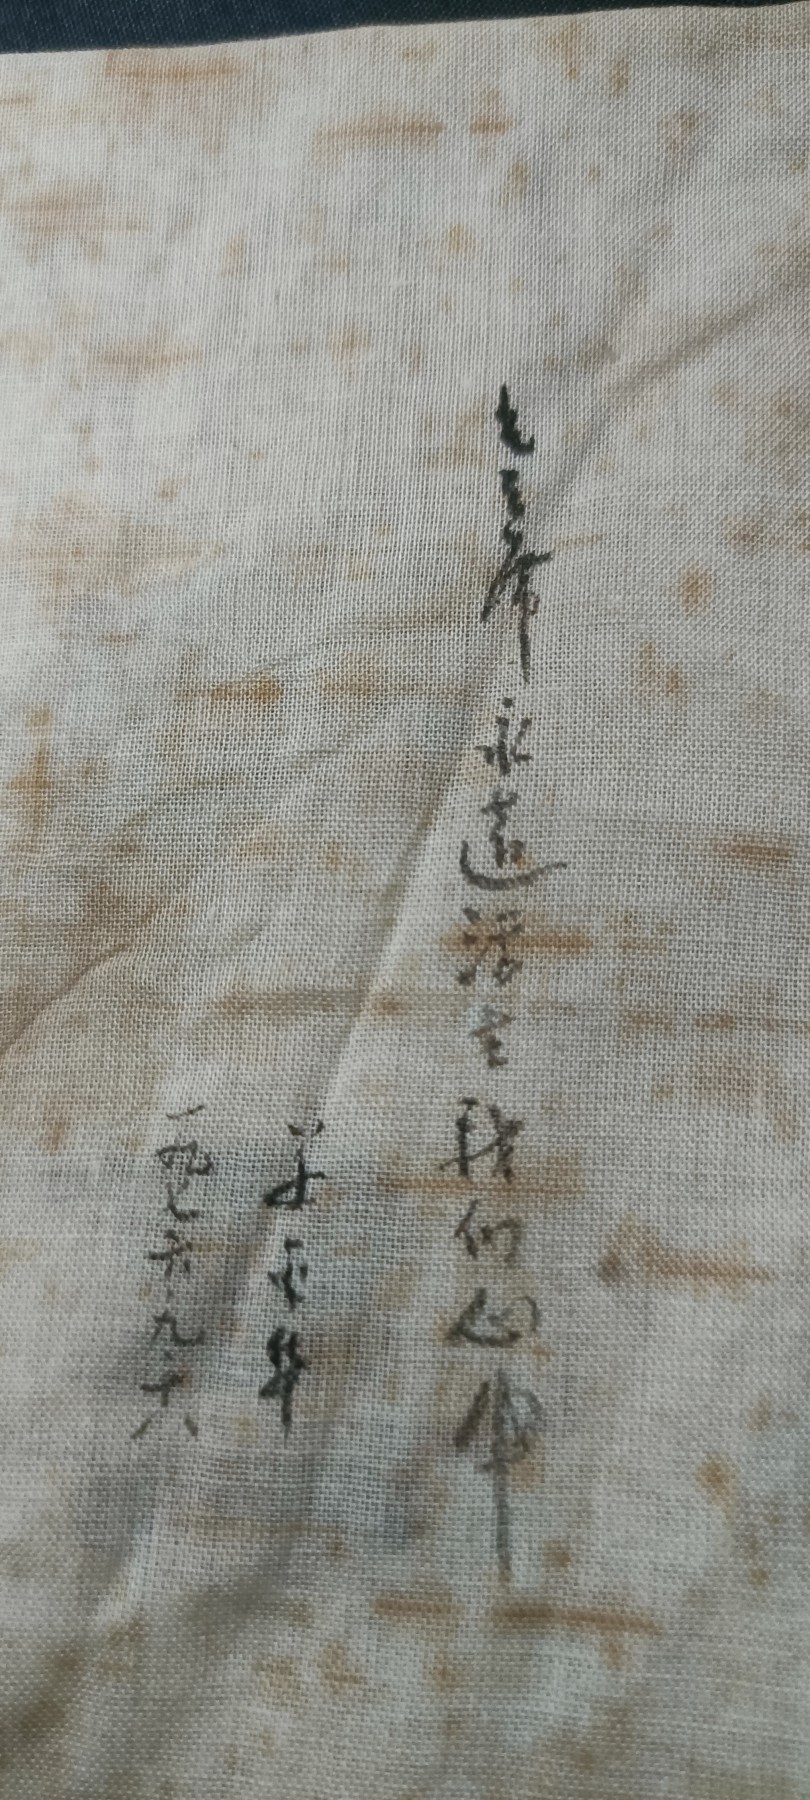 毛主席永远活在我们心中
一九七六.九.十八